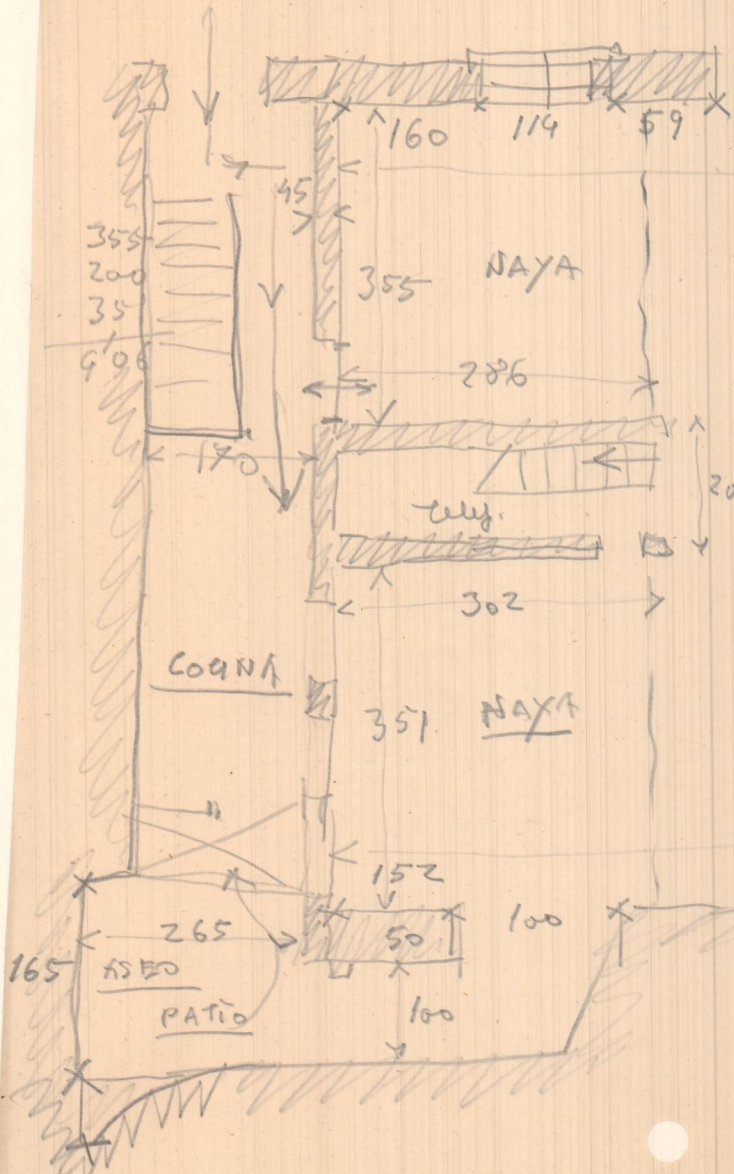 160 114 59
45
355
200
35
9'06
355
NAYA
286
170
20
telef.
302
COCINA
351
NAYA
152
265
50
100
165
ASEO
PATIO
100